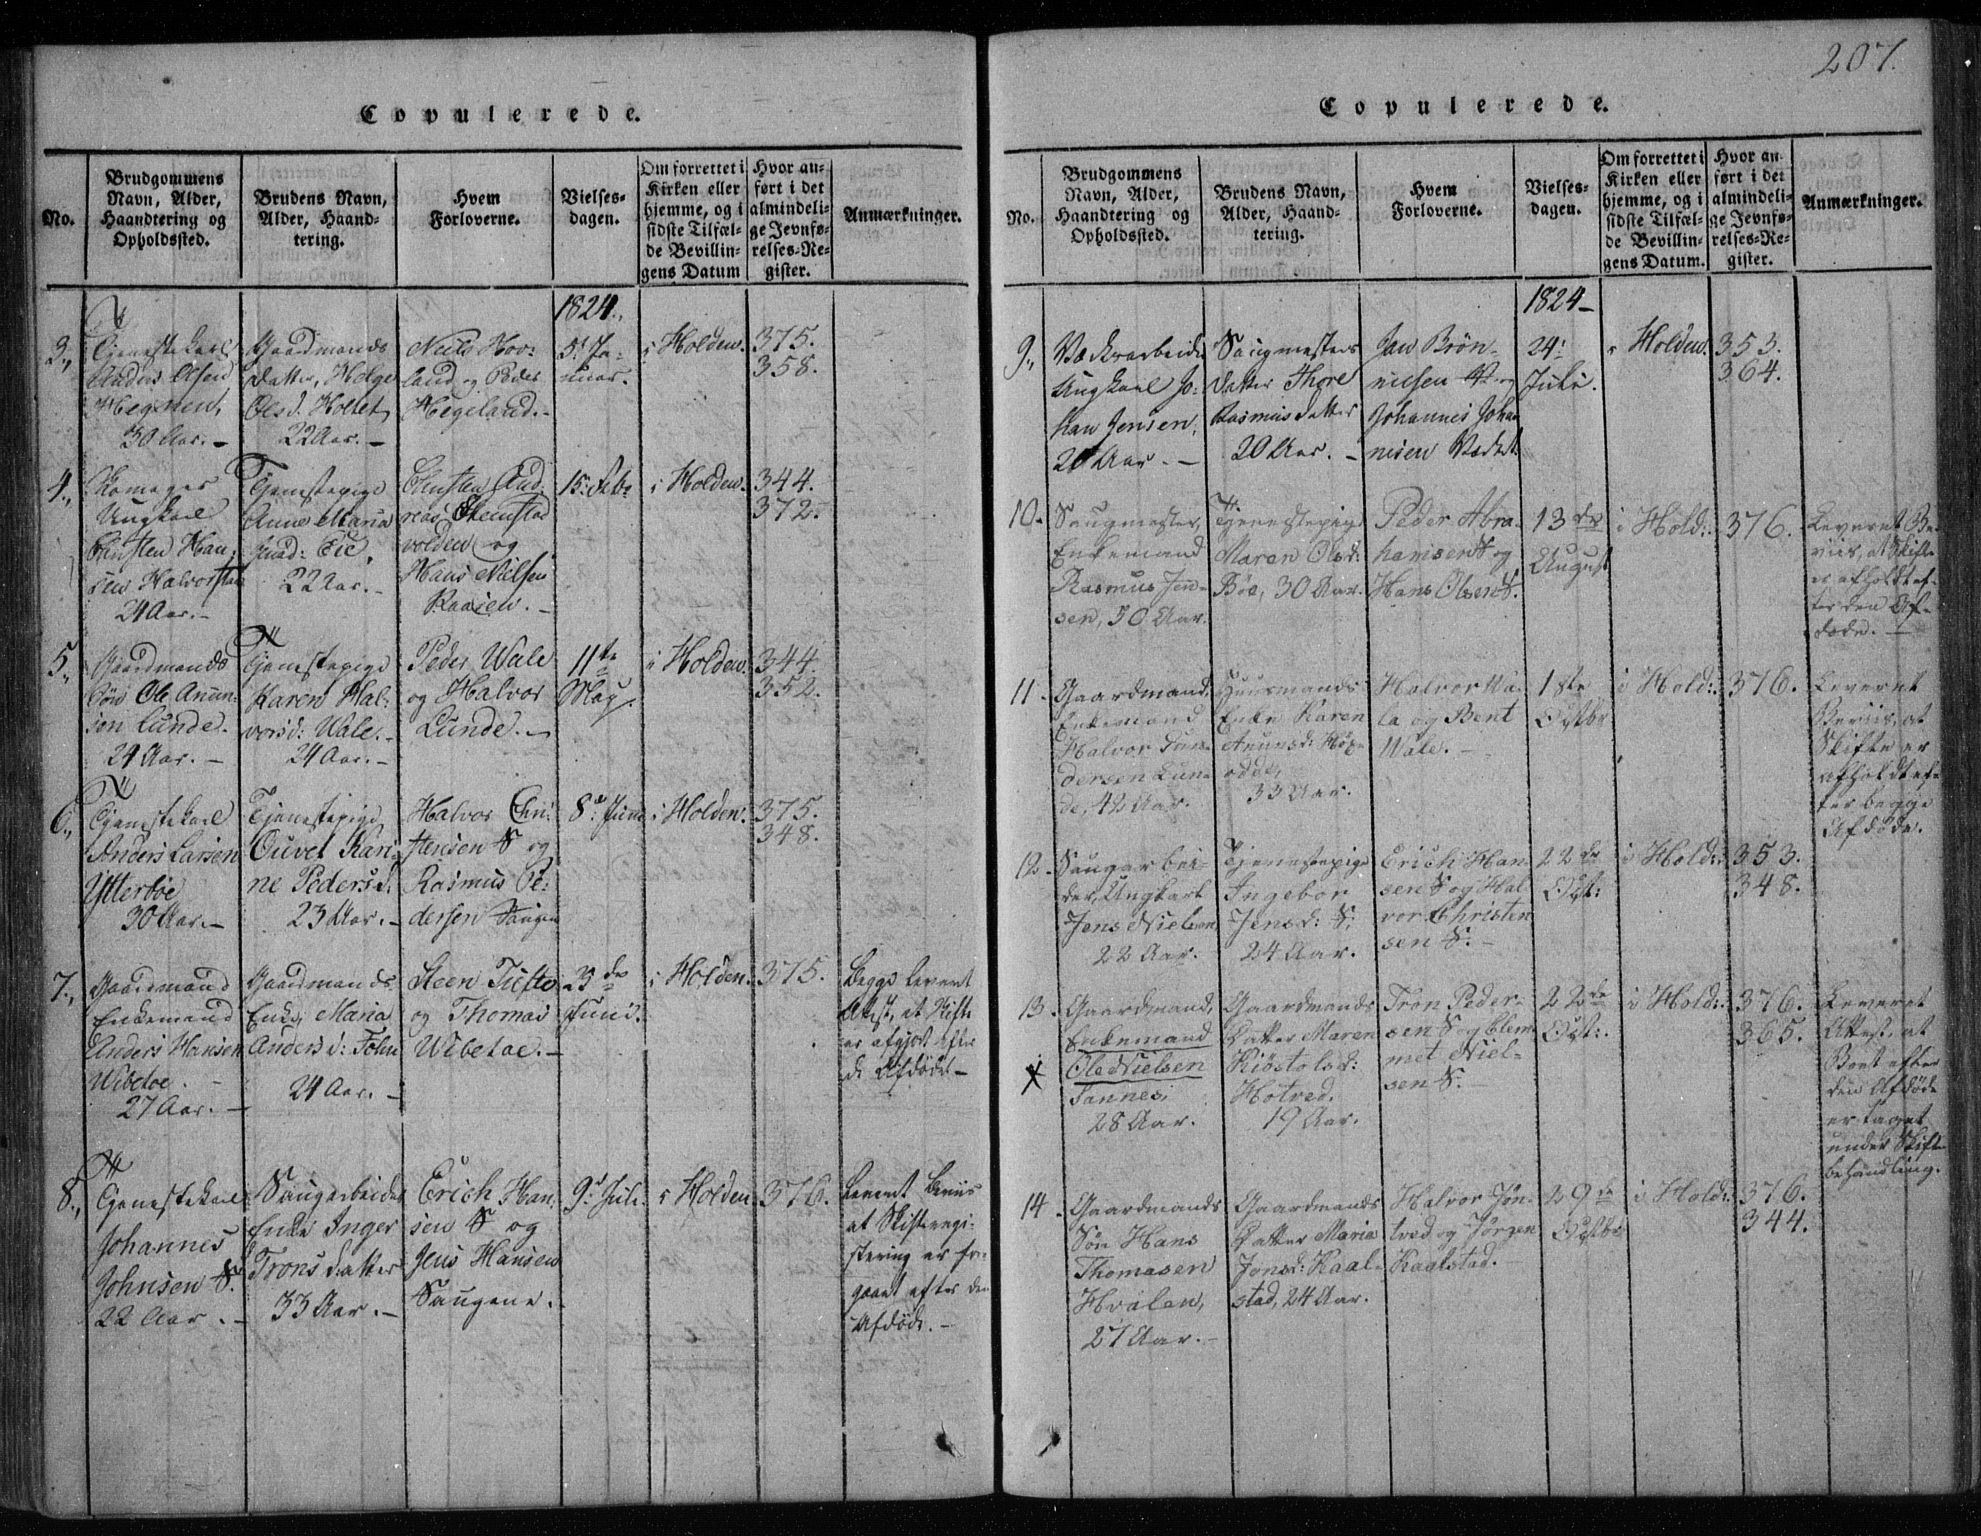 207.
Copulerede.
No.
Brudgommens Navn, Alder, Haandtering og Opholdssted.
Brudens Navn, Alder, Haandtering.
Hvem Forloverne.
Vielsesdagen.
Om forrettet i Kirken eller hjemme, og i sidste Tilfælde Bevillingens Datum
Hvor anført i det almindelige Jevnførelses-Register.
Anmærkninger.
1824.
3.,
Tjenestekarl
Anders Olsen
Hegnen,
30 Aar. –
Gaardmands
Datter, Helge
Olsd. Holtet,
22 Aar. –
Niels Hov-
land og Peder
Hegeland. –
5t Ja-
nuar.
i Holden.
375.
358.
4.,
Ungkarl
Christen Han-
sen Halvorstad
24 Aar. –
Tjenestepige
Anne Maria
Eie,
22 Aar. –
Christen And
reas Stenstad
volden og
Hans Nielsen
Raasen. –
15: Feb:
i Holden.
344.
372.
5.,
Gaardmands
Søn Ole Anun-
sen Lunde.
24 Aar. –
Tjenestepige
Karen Hal-
vorsd: Wale. –
24 Aar. –
Peder Wale
og Halvor
Lunde. –
11te
May.
i Holden.
344.
352.
6.,
Tjenestekarl
Anders Larsen
Ytterbøe
30 Aar. –
Tjenestepige
Ouvel Kari-
ne Pedersd.
23 Aar. –
Halvor Chri-
stensen S og
Rasmus Pe-
dersen Saugen
8de Juni
i Holden.
375.
348.
7.,
Gaardmand
Enkemand
Anders Hansen
Wibetoe. –
27 Aar. –
Gaardmands
Enke, Maria
Andersd: Tohn
24 Aar. –
Steen Tufte
og Thomas
Wibetoe. –
23de
Juni.
i Holden.
375.
Begge leveret
Attest, at Skifte
er afgjort efter
de Afdøde –
8.,
Tjenestekarl
Johannes
Johnsen S.
22 Aar. –
Saugarbeider
Enke Inger
Tronsdatter
33 Aar. –
Erich Han-
sen S og
Jens Hansen
Saugene.
9de Juli
i Holden
376.
Leveret Beviis
at Skifteregi-
stering er fore-
gaaet efter den
Afdøde. –
Copulerede.
No.
Brudgommens Navn, Alder, Haandtering og Opholdssted.
Brudens Navn, Alder, Haandtering.
Hvem Forloverne.
Vielsesdagen.
Om forrettet i Kirken eller hjemme, og i sidste Tilfælde Bevillingens Datum.
Hvor anført i det almindelige Jevnførelses-Register.
Anmærkninger.
1824 –
9.,
Værksarbeider
Ungkarl Jo-
han Jensen,
20 Aar. –
Saugmesters
Datter Thore
Rasmusdatter
20 Aar. –
Jan Brøn-
nielsen og
Johannes Johan
nisen Værket.
24:
Juli.
i Holden.
353.
364.
10.
Saugmester,
Enkemand
Rasmus Jen-
sen, 50 Aar.
Tjenestepige
Maren Olsd:
Bøe, 30 Aar.
Peder Abra-
hamsen S og
Hans Olsen S.
13de
August
i Hold:
376.
Leveret Be-
viis, at Skifte
er afholdt ef-
ter den Af-
døde. –
11.
Gaardmand,
Enkemand
Halvor Gun-
dersen Lun-
de, 42 Aar.
Huusmands
Enke Karen
Anunsd:
33 Aar.
Halvor Wa-
la og Bent
Wale. –
1ste
Octbr
i Hold:
376.
Leveret
Beviis, at
Skifte er
afholdt ef-
ter begge
Afdøde.
12.
Saugarbei-
der, Ungkarl
Jens Nielsen
22 Aar.
Tjenestepige
Ingebor
Jensd: S,
24 Aar.
Erich Han-
sen S og Hal
vor Christen
sen S. –
22de
Oct:
i Hold:
353.
348.
13.
X
Gaardmand,
Enkemand
Ole Nielsen
Sannes,
28 Aar.
Gaardmands
Datter Maren
Kiøstolsd:
Hotved,
19 Aar.
Tron Peder-
sen S og Clem-
met Niel-
sen S. –
22de
Oct:
i Hold:
376.
365.
Leveret
Attest, at
Boet efter
den Afdøde
er taget
under Skifte
behandling.
14.
Gaardmands
Søn Hans
Thomasen
Hvalen,
27 Aar. –
Gaardmands
Datter Maria
Jonsd: Kaal-
stad, 24 Aar.
Halvor Jøn-
tved og Jørgen
Kaalstad. –
29de
Octbr
i Hold:
376.
344.